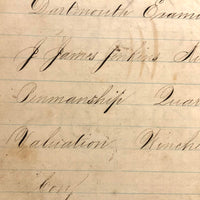 Dartmouth Exami
P James Jenkins
Penmanship Quar
Valuation Winche
Coy